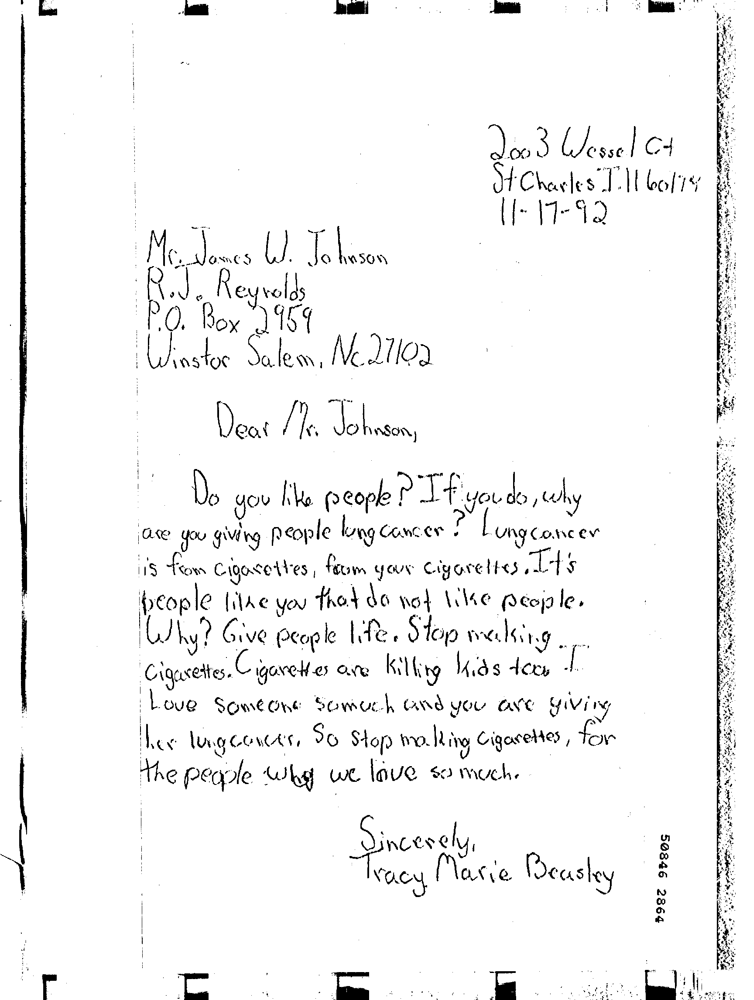 2003 Wessel Ct
St Charles Ill 60174
11-17-92
Mr. James W. Johnson
R.J. Reynolds
P.O. Box 2959
Winstor Salem, Nc 27102
Dear Mr. Johnson,
Do you like people? If you do, why
are you giving people lung cancer? Lung cancer
is from cigarettes, from your cigarettes. It's
people like you that do not like people.
Why? Give people life. Stop making
cigarettes. Cigarettes are killing kids too I
Love someone somuch and you are giving
her lung cancer. So stop making cigarettes, for
the people why we love so much.
Sincerely,
Tracy Marie Beasley
50846 2864